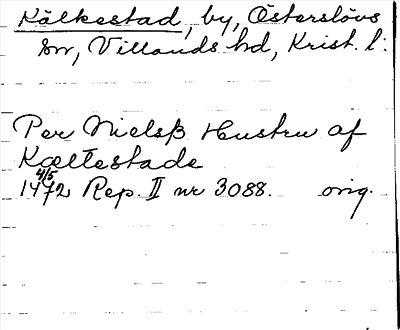 Kälkestad, by, Österslövs
sn, Villands hd, Krist. l:
Per Nielsß Hustru af
Kælkestade
4/5
1472 Rep. II nr 3088. orig.